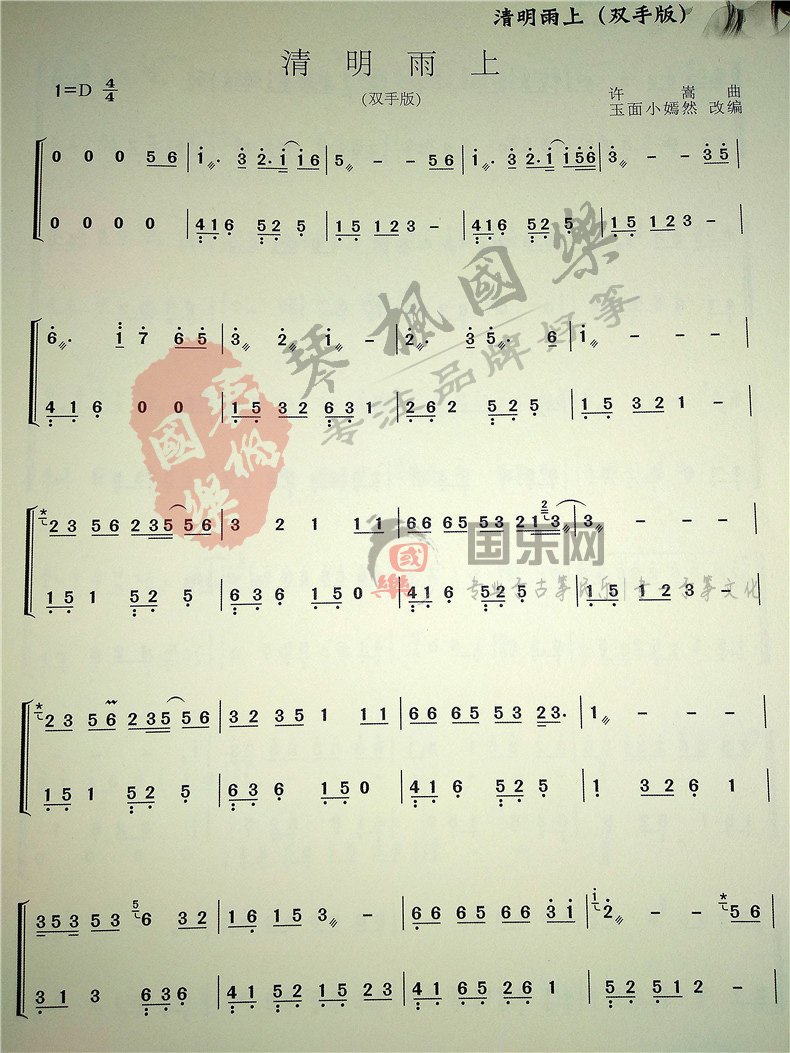 清明雨上（双手版）
清 明 雨 上
1=D 4/4
(双手版)
许 嵩 曲
玉面小嫣然 改编
0 0 0 5 6 | 1 . 3 2 . 1 1 1 6 | 5 - - 5 6 | 1 . 3 2 . 1 1 5 6 | 3 - - 3 5 |
0 0 0 0 | 4 1 6 5 2 5 | 1 5 1 2 3 - | 4 1 6 5 2 5 | 1 5 1 2 3 - |
6 . 1 7 6 5 | 3 2 1 - | 2 . 3 5 . 6 | 1 - - - |
4 1 6 0 0 | 1 5 3 2 6 3 1 | 2 6 2 5 2 5 | 1 5 3 2 1 - |
2 3 5 6 2 3 5 5 6 | 3 2 1 1 1 | 6 6 6 5 5 3 2 1 2 3 | 3 - - - |
1 5 1 5 2 5 | 6 3 6 1 5 0 | 4 1 6 5 2 5 | 1 5 1 2 3 - |
2 3 5 6 2 3 5 5 6 | 3 2 3 5 1 1 1 | 6 6 6 5 5 3 2 3 . | 1 - - - |
1 5 1 5 2 5 | 6 3 6 1 5 0 | 4 1 6 5 2 5 | 1 3 2 6 1 |
3 5 3 5 3 5 6 3 2 | 1 6 1 5 3 - | 6 6 5 6 6 3 1 | 1 2 - - 5 6 |
3 1 3 6 3 6 | 4 1 5 2 1 5 2 3 | 4 1 5 2 1 5 1 | 5 2 5 1 2 - |
琴楓國樂
专注品牌好筝
國樂
国乐网
专业于古筝民乐
筝文化